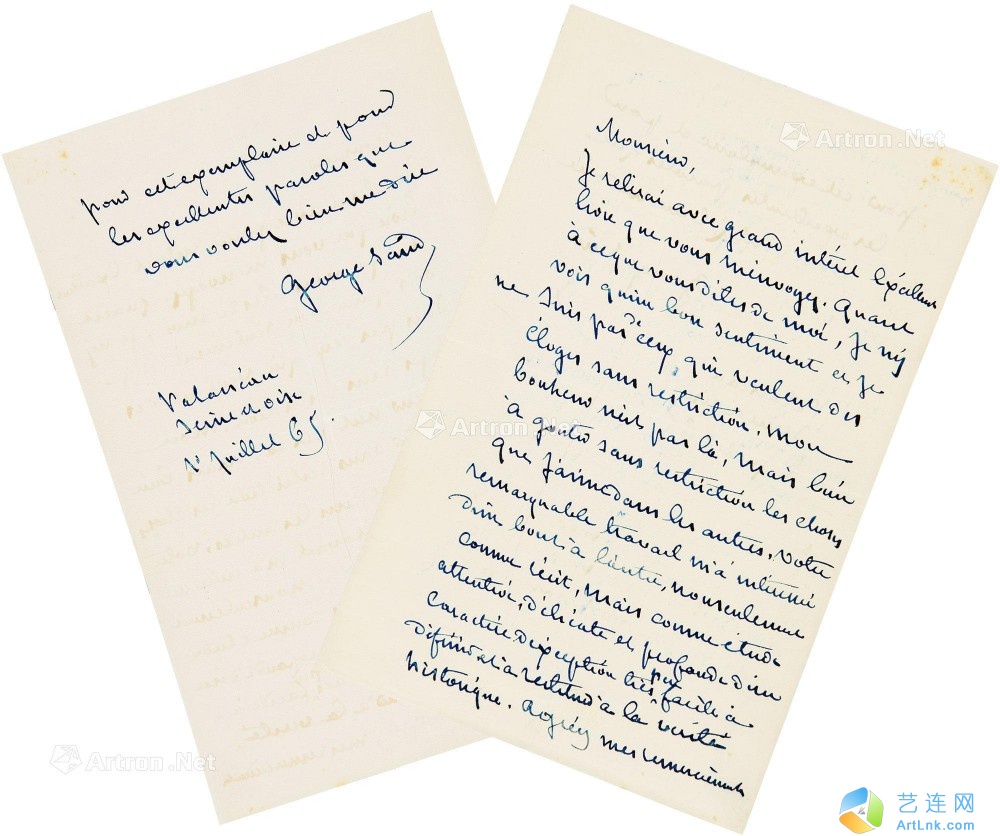 Monsieur,
Je relirai avec grand intérêt l'éxcellent
livre que vous m'envoyez. Quant
à ce que vous dites de moi, je n'y
vois qu'un bon sentiment et je
ne suis pas de ceux qui veulent des
éloges sans restriction. Mon
bonheur n'est pas là, mais bien
à goûter sans restriction les choses
que j'aime dans les autres. Votre
remarquable travail m'a intéressé
d'un bout à l'autre, non seulement
comme récit, mais comme étude
attentive, délicate et profonde d'un
caractère d'exception très peu facile à
définir et à restituer à la vérité
historique. Agréez mes remerciements
pour cet exemplaire et pour
les excellentes paroles que
vous voulez bien me dire
George Sand
Palaiseau
Seine et Oise
1r Juillet 65.
Artron.Net
Artron.Net
Artron.Net
艺连网
ArtLnk.com